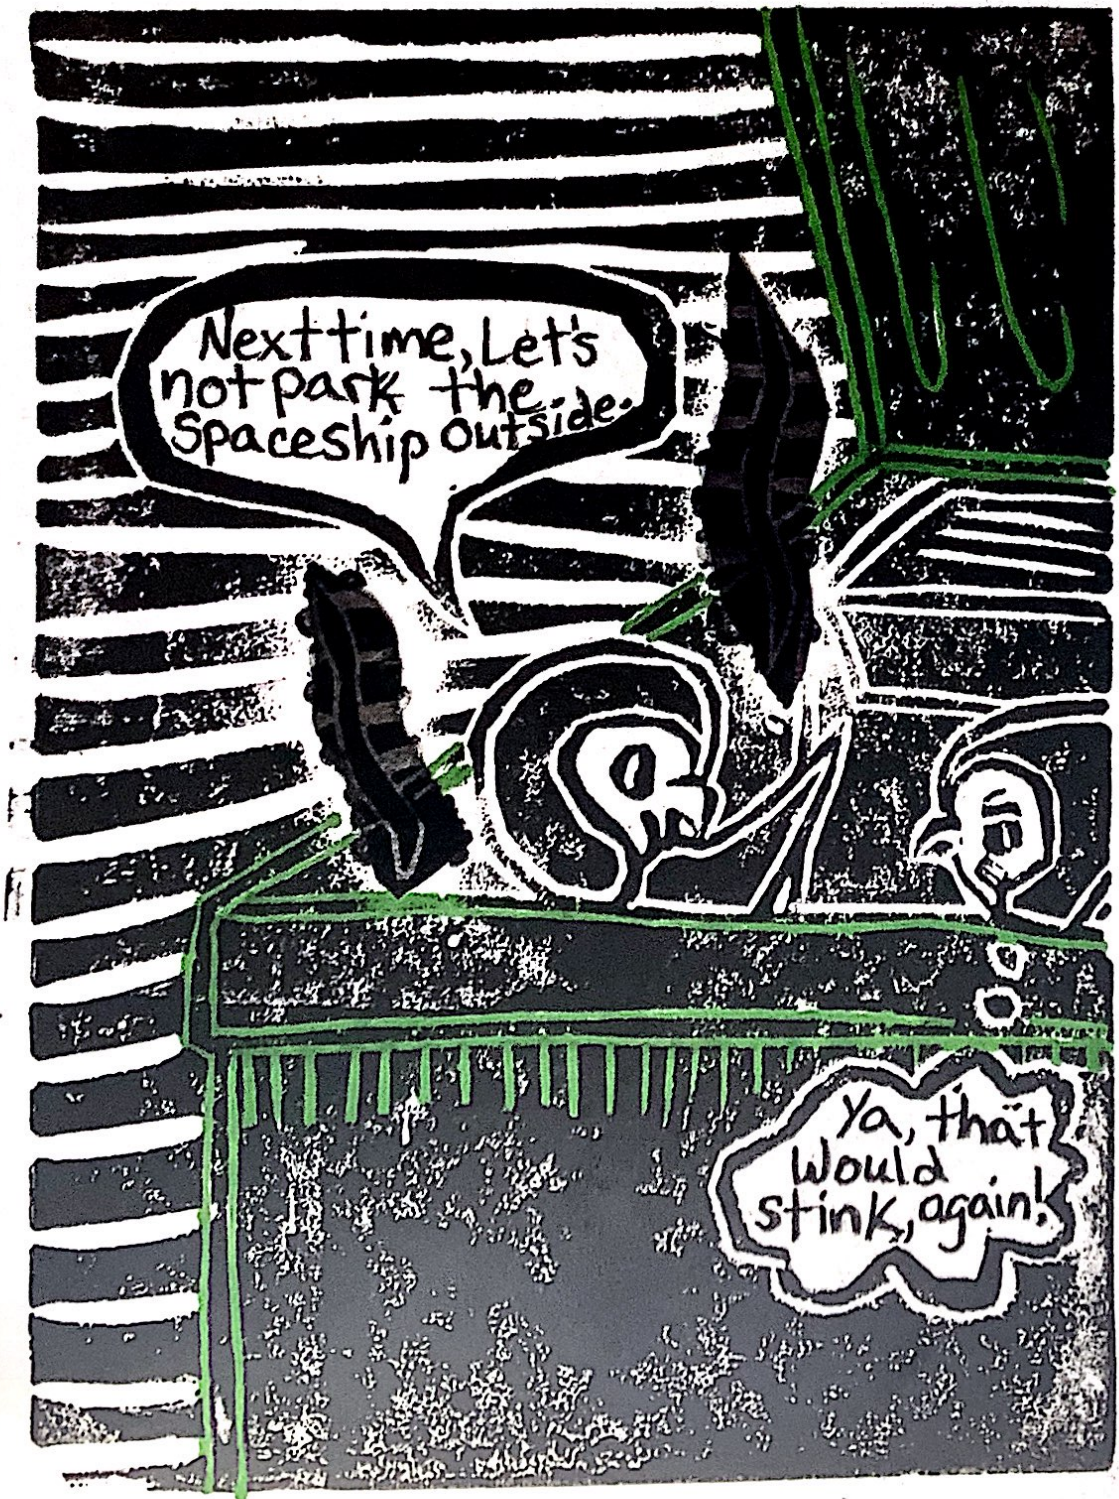 Next time, Let's
not park the
Spaceship outside.
Ya, that
Would
stink, again!